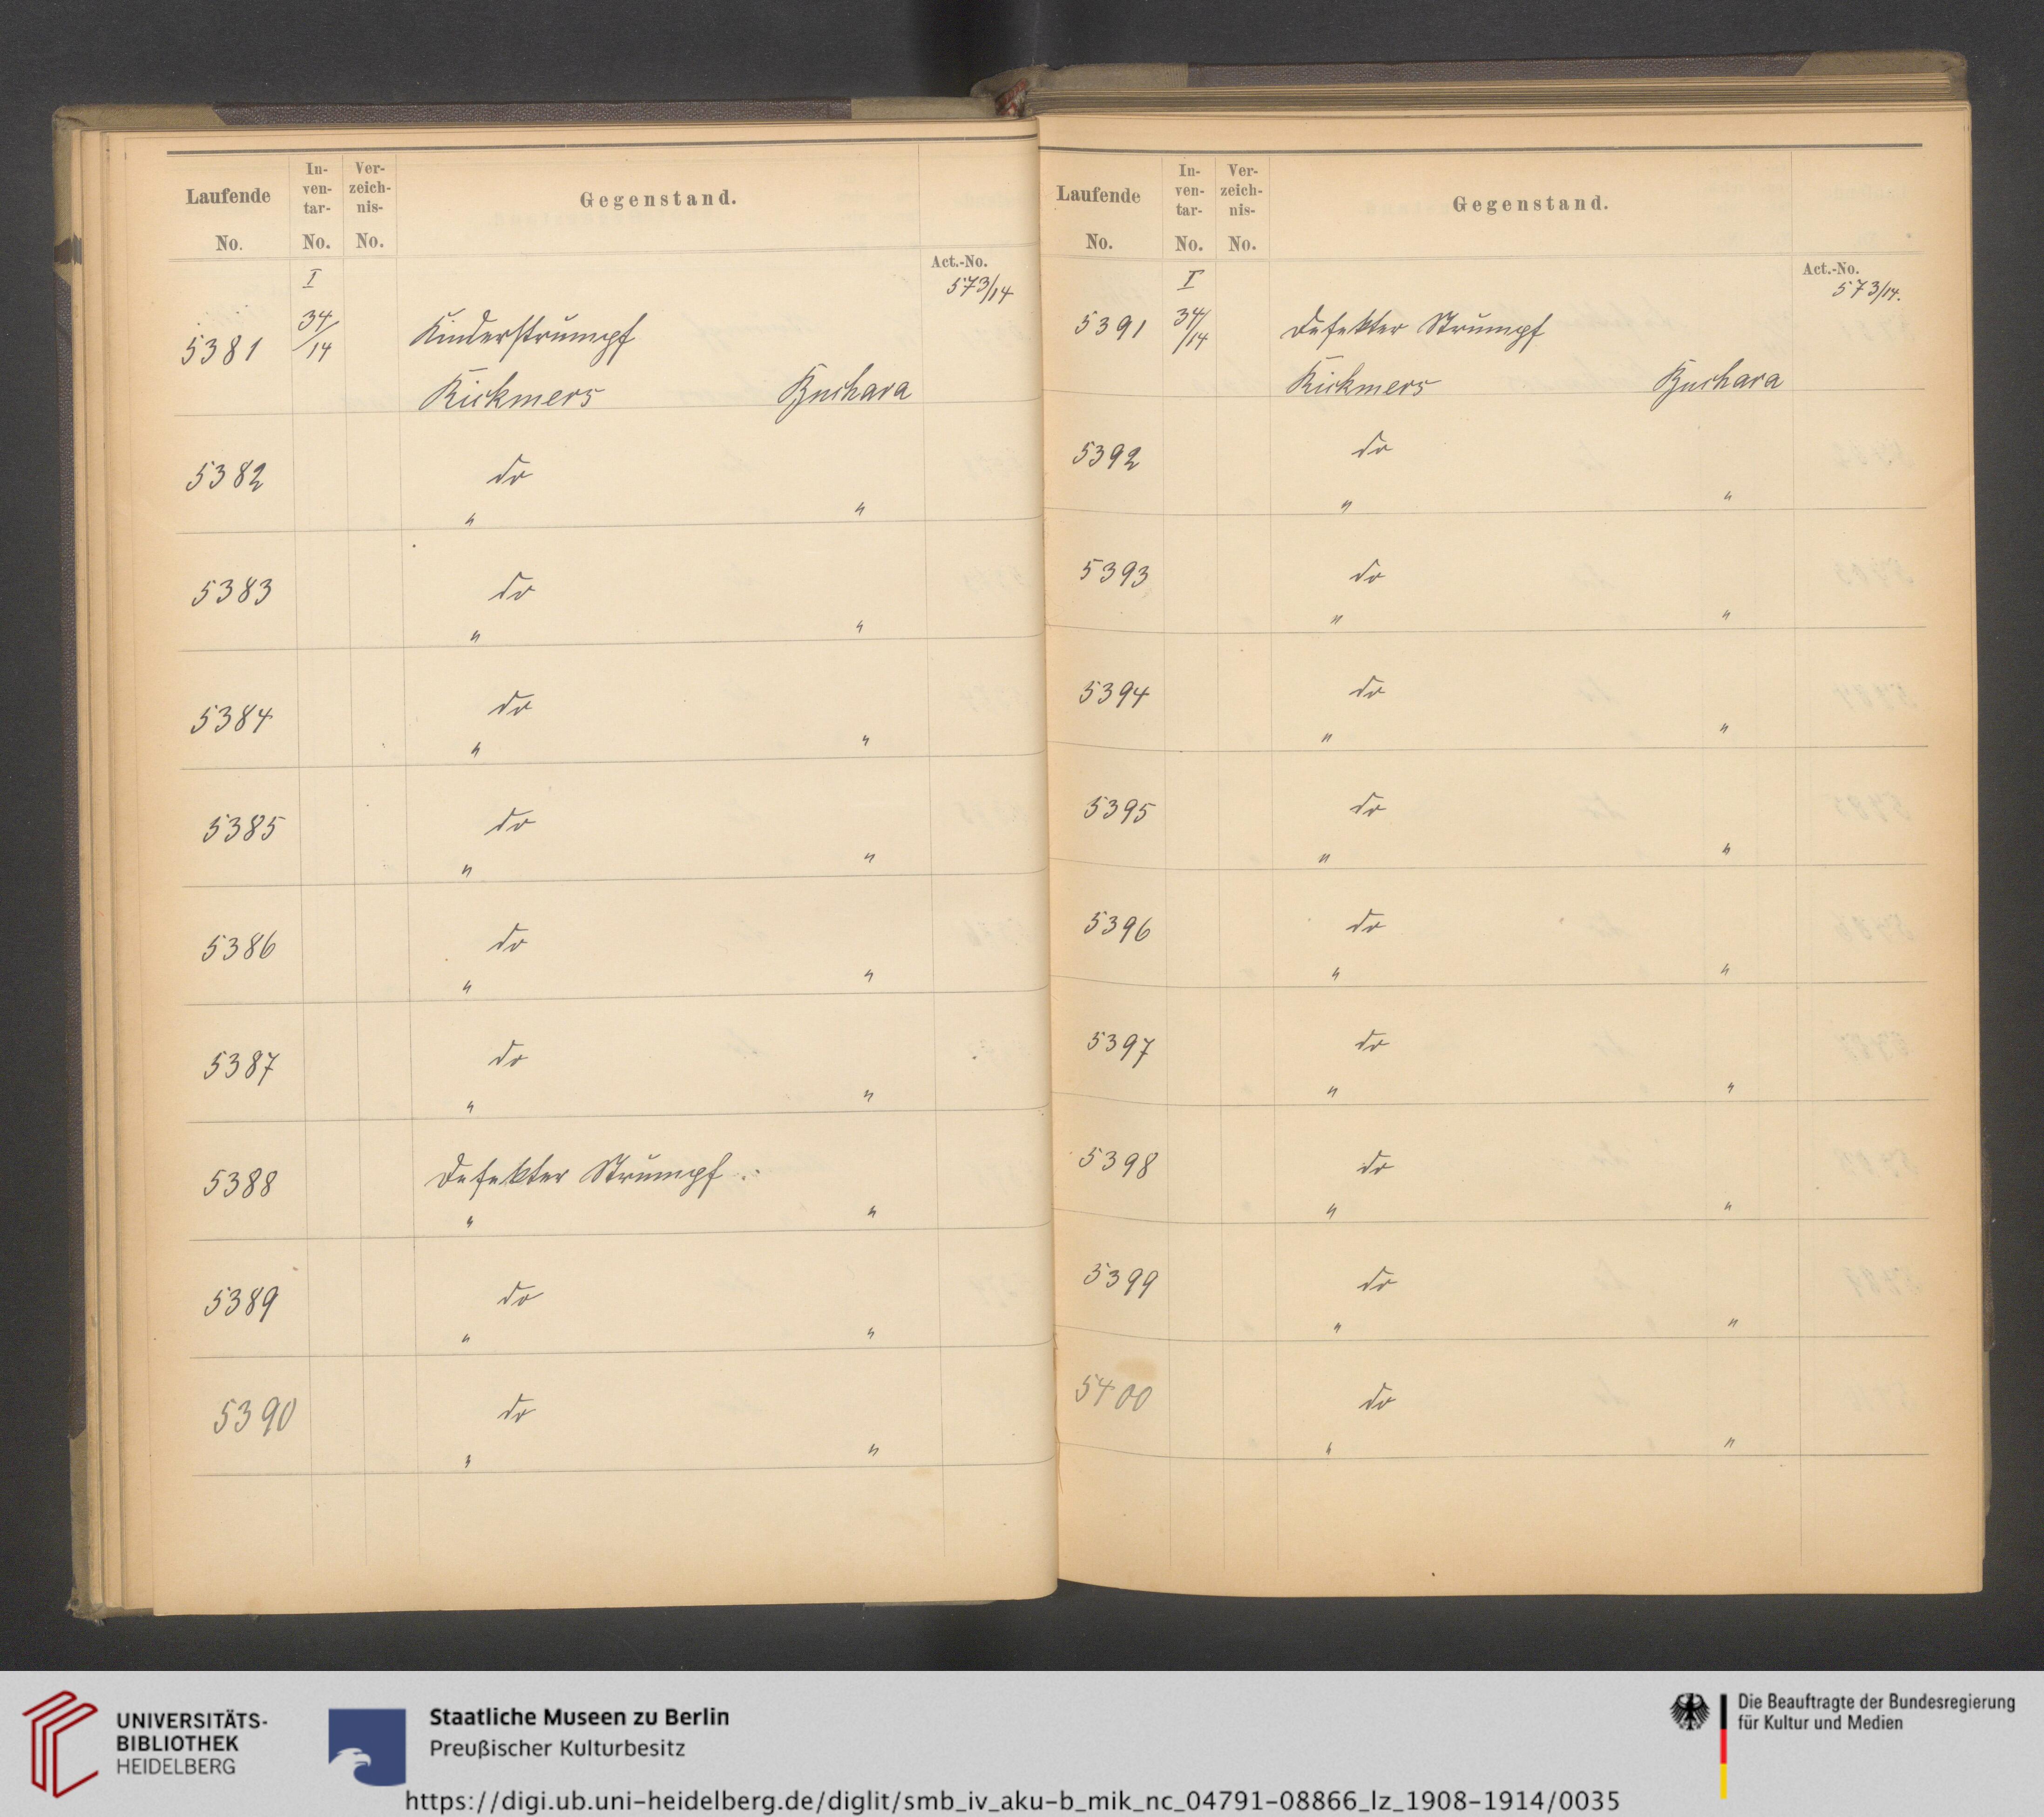 Laufende
No.
In-
ven-
tar-
No.
Ver-
zeich-
nis-
No.
Gegenstand.
Act.-No.
573/14
I
5381 34/14 Kinderstrumpf
Rickmers Buchara
5382 do
" "
5383 do
" "
5384 do
" "
5385 do
" "
5386 do
" "
5387 do
" "
5388 Defekter Strumpf.
" "
5389 do
" "
5390 do
" "
Laufende
No.
In-
ven-
tar-
No.
Ver-
zeich-
nis-
No.
Gegenstand.
Act.-No.
573/14.
I
5391 34/14 Defekter Strumpf
Rickmers Buchara
5392 do
" "
5393 do
" "
5394 do
" "
5395 do
" "
5396 do
" "
5397 do
" "
5398 do
" "
5399 do
" "
5400 do
" "
UNIVERSITÄTS-
BIBLIOTHEK
HEIDELBERG
Staatliche Museen zu Berlin
Preußischer Kulturbesitz
Die Beauftragte der Bundesregierung
für Kultur und Medien
https://digi.ub.uni-heidelberg.de/diglit/smb_iv_aku-b_mik_nc_04791-08866_lz_1908-1914/0035